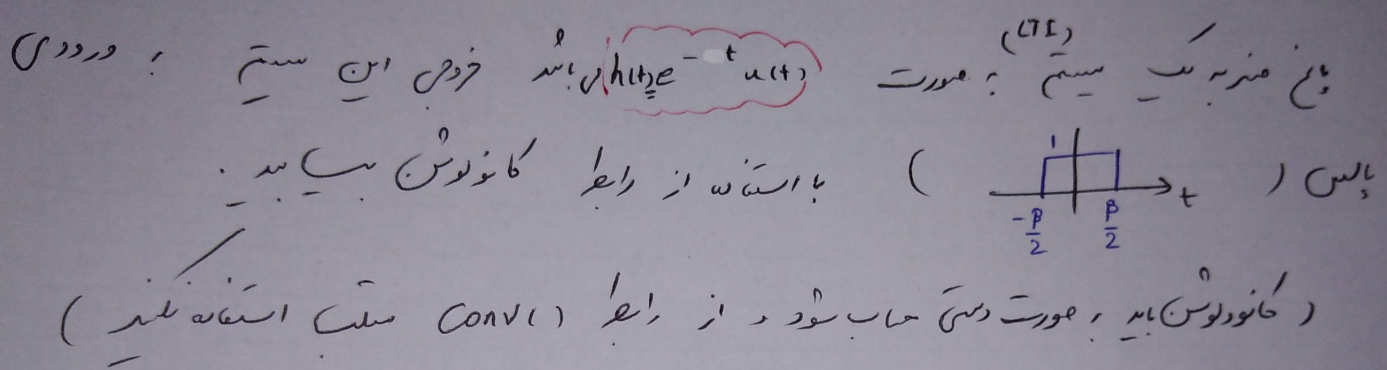 پاسخ ضربه یک سیستم (LTI) به صورت h(t)=e^-t u(t) می باشد خروجی این سیستم به ورودی
پالس ( 1 -β/2 β/2 t ) با استفاده از رابطه کانولوشن بیابید.
(کانولوشن باید به صورت دستی حساب شود و از رابطه conv() متلب استفاده نکنید)